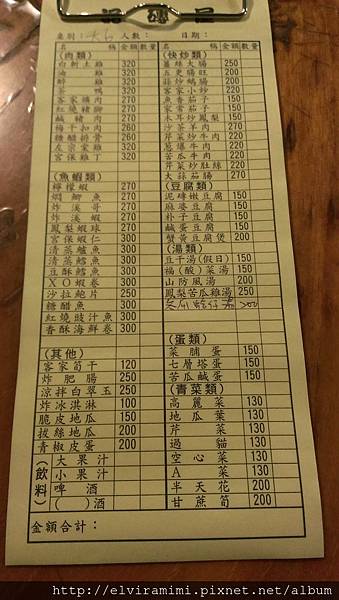 桌別： 人數： 日期：
名 稱 金額 數量
(肉類)
白斬土雞 320
油雞 320
鮮雞 320
客家爌肉 270
紅燒豬腳 270
鹹豬肉 270
梅干扣肉 260
糖醋排骨 260
左宗棠雞 320
宮保雞丁 320
(魚蝦類)
檸檬蝦 270
燜鯽魚 270
炸溪魚 270
炸溪蝦 270
鳳梨蝦球 270
宮保蝦仁 300
清蒸鱸魚 300
清蒸鱈魚 300
豆酥鱈魚 300
XO蝦卷 300
沙拉鮑片 250
糖醋魚 300
紅燒豉汁魚 300
香酥海鮮卷 300
(其他)
客家筍干 120
炸肥腸 250
涼拌白翠玉 250
炸冰淇淋 100
脆皮地瓜 150
拔絲地瓜 200
青椒皮蛋 200
(飲料)
大果汁
小果汁
啤酒
( )酒
金額合計：
名 稱 金額 數量
(快炒類)
薑絲大腸 250
五更腸旺 200
客家小炒 220
魚香茄子 150
家常茄子 150
木耳炒鳳梨 150
沙茶羊肉 270
芹菜炒牛肉 220
蔥爆牛肉 220
苦瓜牛肉 220
芹菜炒肚絲 220
大蒜茄腸 270
(豆腐類)
泥磚嫩豆腐 150
麻婆豆腐 150
朴子豆腐 150
鹹蛋豆腐 150
蟹黃豆腐煲 200
(湯類)
豆干湯(假日) 150
福(酸)菜湯 150
山防風湯 200
鳳梨苦瓜雞湯 250
200
(蛋類)
菜脯蛋 150
七層塔蛋 150
苦瓜鹹蛋 150
(青菜類)
高麗菜 130
地瓜葉 130
芹菜 130
過貓 130
空心菜 130
A菜 130
半天花 200
甘蔗筍 200
http://elviramimi.pixnet.net/album